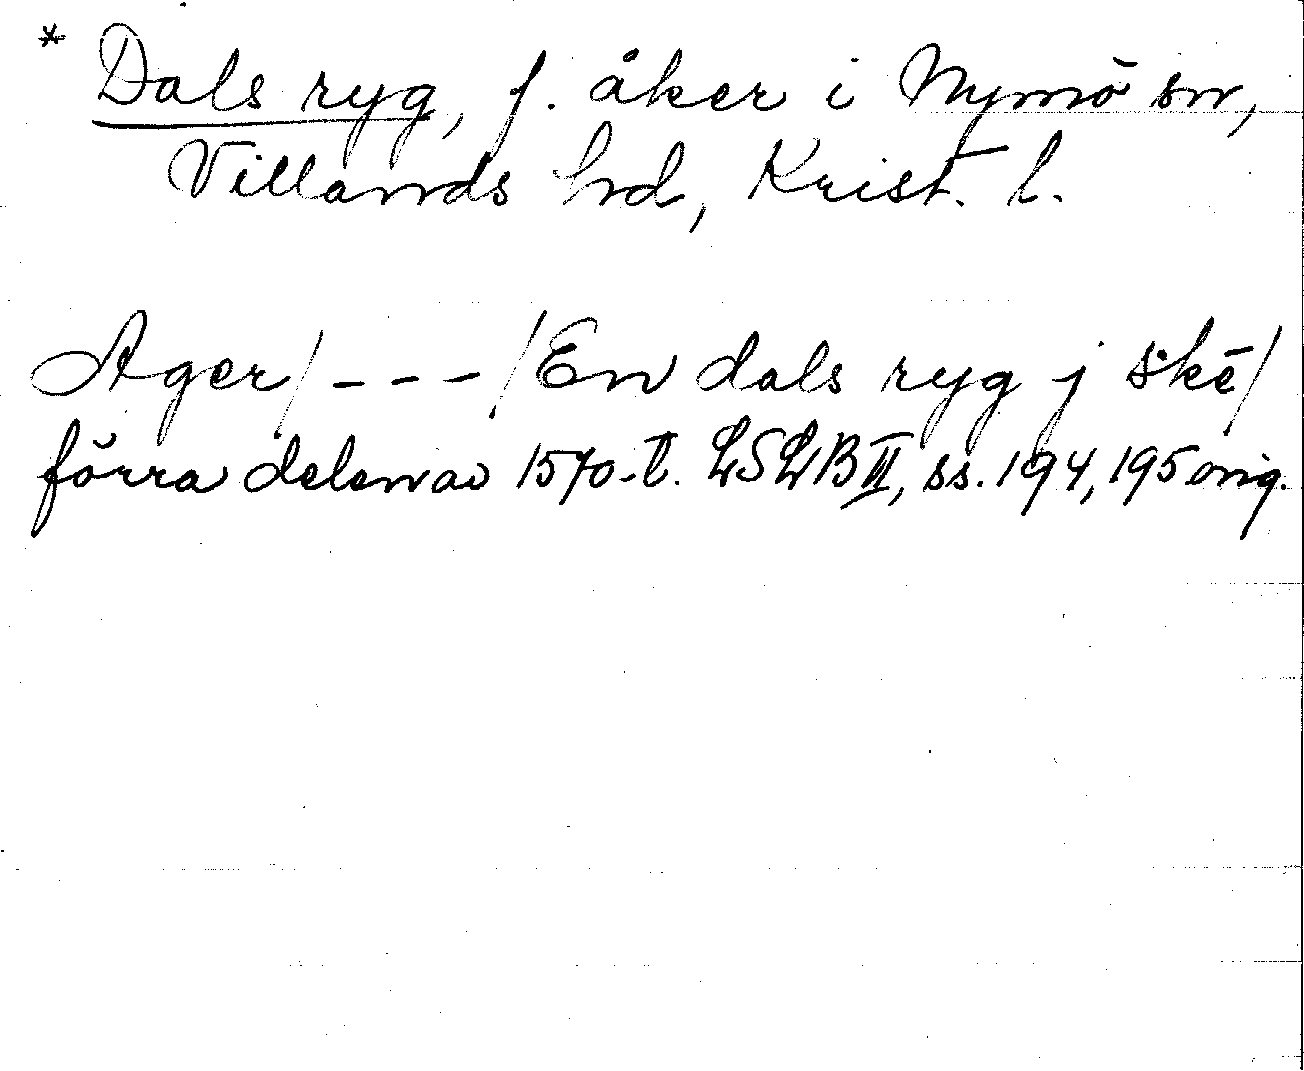 * Dals ryg, f. åker i Nymö sn,
Villands hd, Krist. l.
Ager/ - - - /En dals ryg j skē/
förra delen av 1570-t. LSLB II, ss. 194, 195 orig.